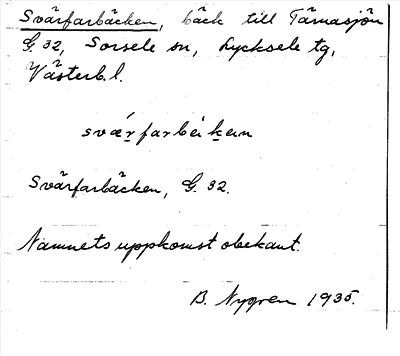 Svärfarbäcken, bäck till Tärnasjön
G. 32, Sorsele sn, Lycksele tg,
Västerb. l.
svǽrfarbéken
Svärfarbäcken, G. 32.
Namnets uppkomst obekant.
B. Nygren 1935.